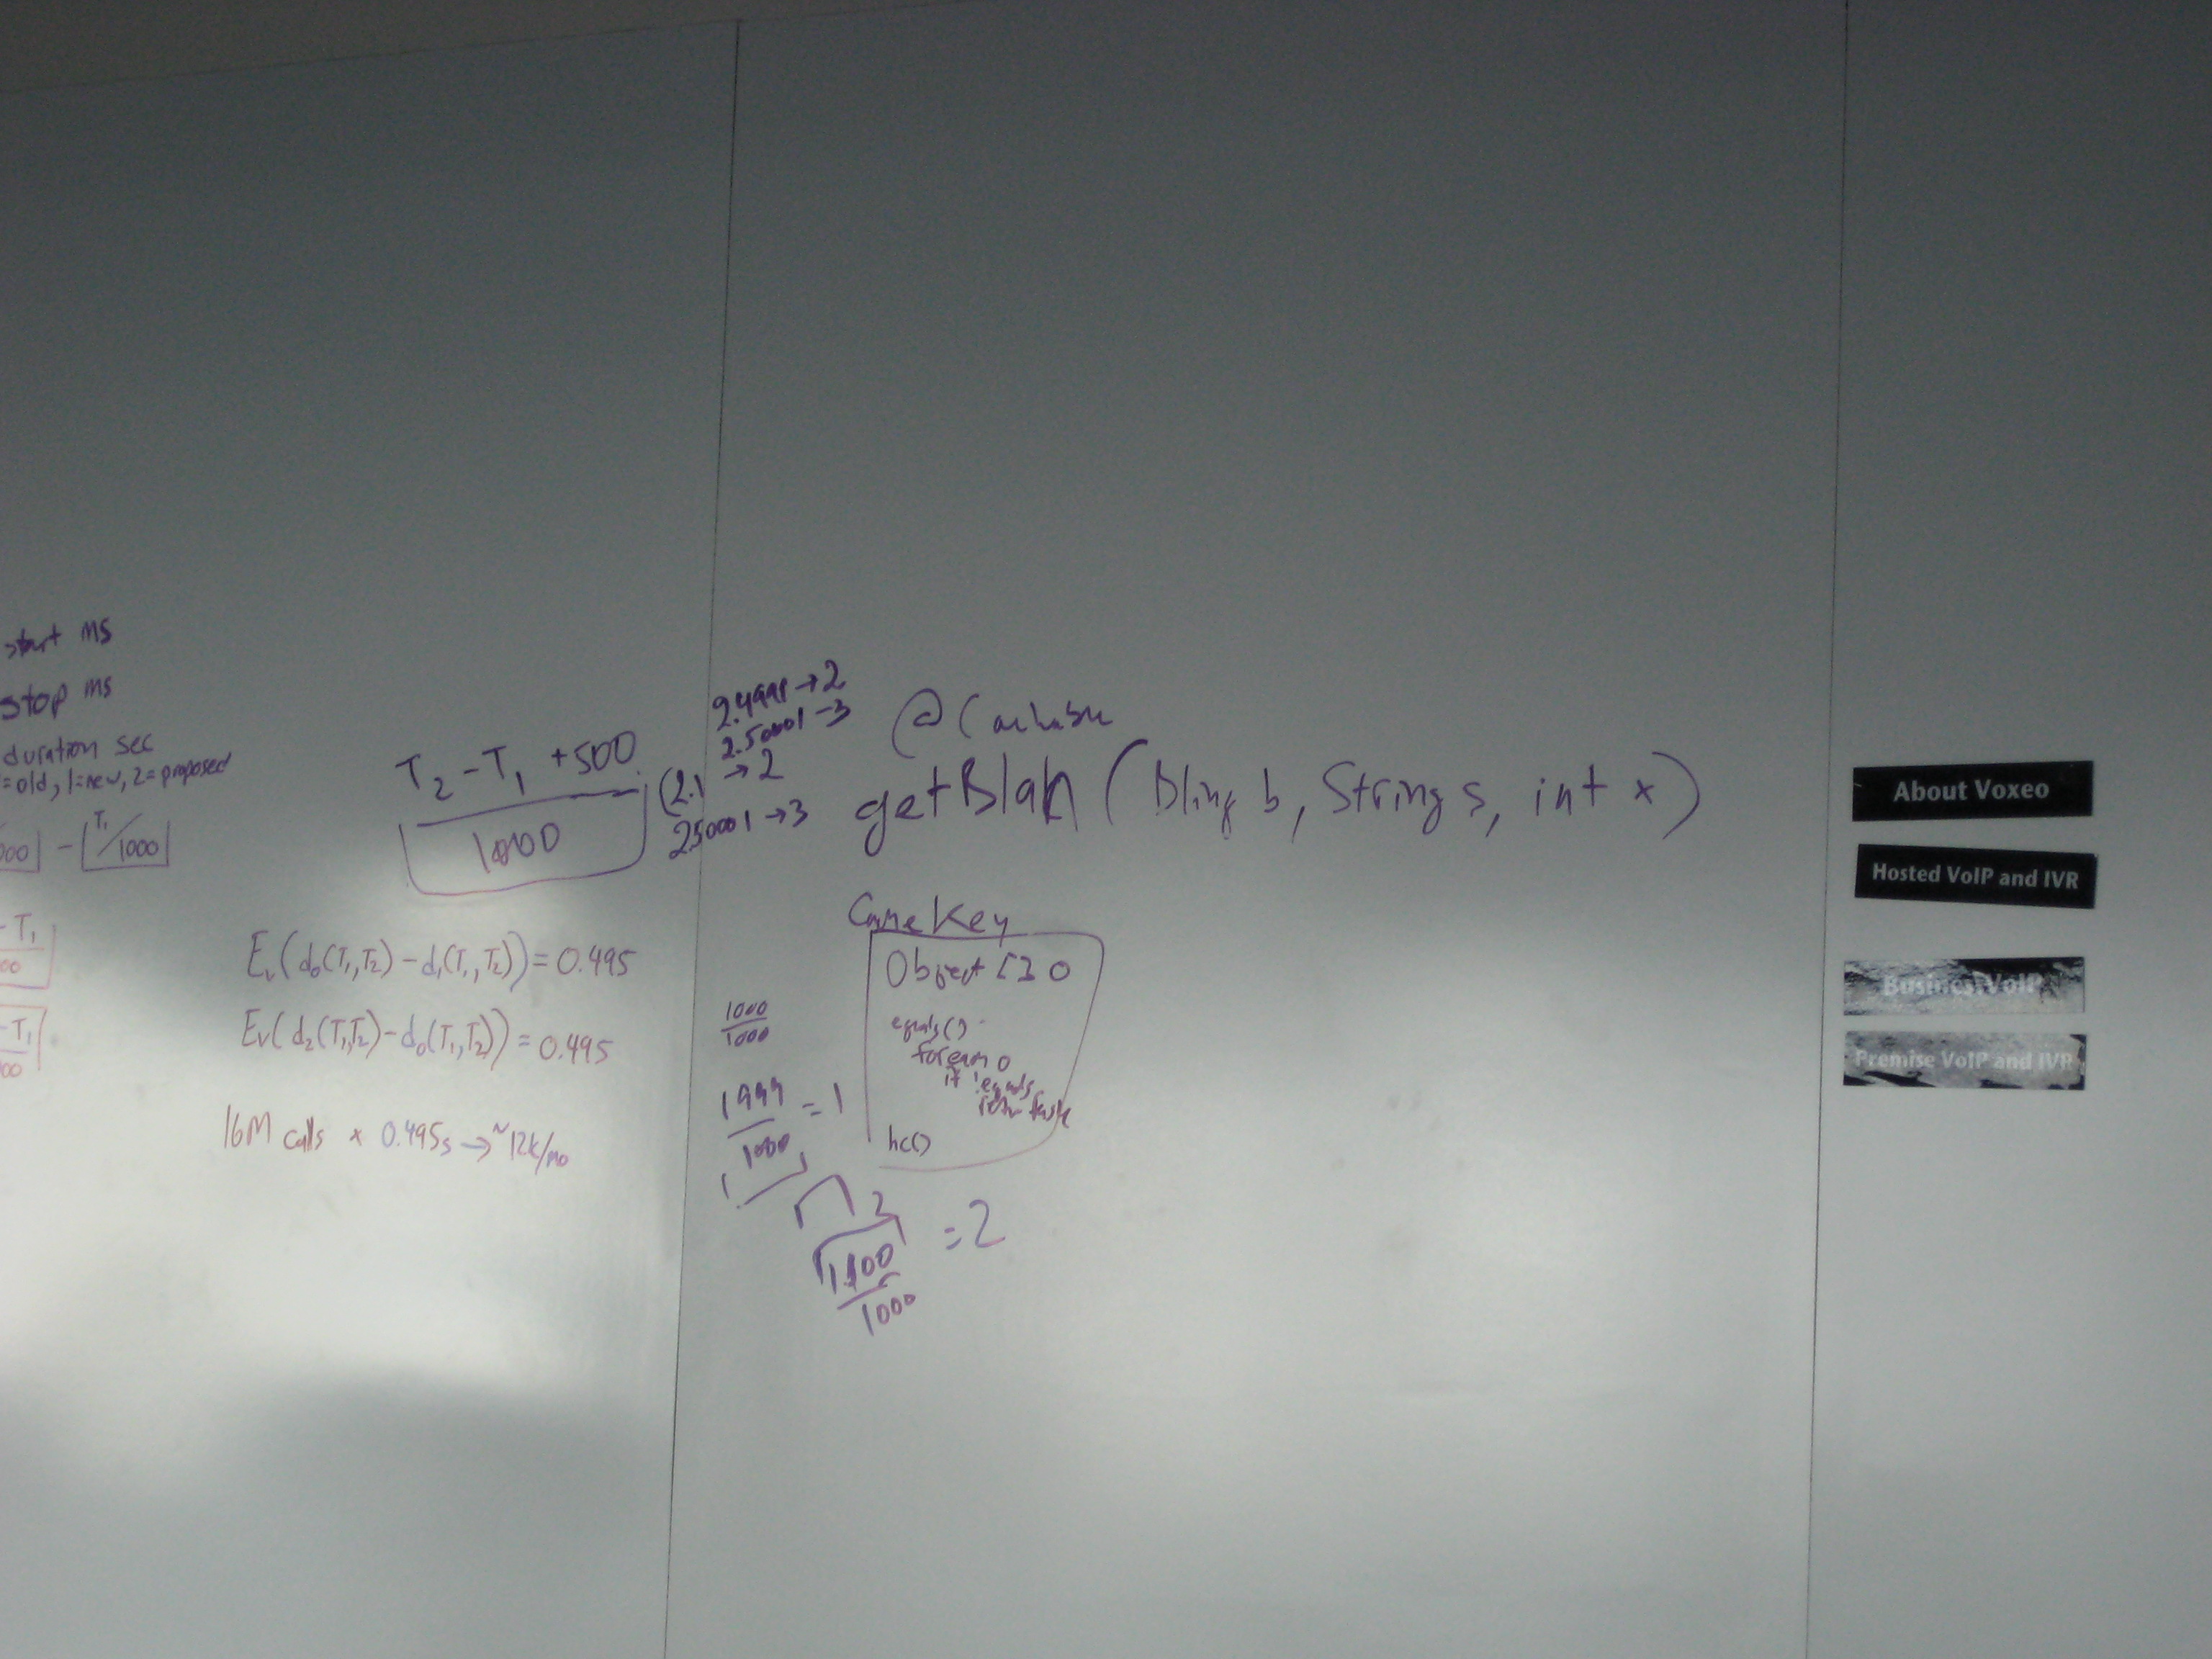 start ms
stop ms
duration sec
=old, 1=new, 2=proposed
000⌋ - ⌊T₁/1000⌋
- T₁
00
- T₁
00
T₂ - T₁ + 500
1000
2.4999 → 2
2.50001 → 3
(2.1 → 2
2.50001 → 3
Eᵥ(d₀(T₁,T₂) - d₁(T₁,T₂)) = 0.495
Eᵥ(d₂(T₁,T₂) - d₀(T₁,T₂)) = 0.495
16M calls × 0.495s → ~12k/mo
@Cachable
getBlah(Bling b, String s, int x)
CacheKey
Object [] o
equals()
foreach o
if !equals
return false
hc()
1000
1000
1999 = 1
1000
2
1100 = 2
1000
About Voxeo
Hosted VoIP and IVR
Business VoIP
Premise VoIP and IVR